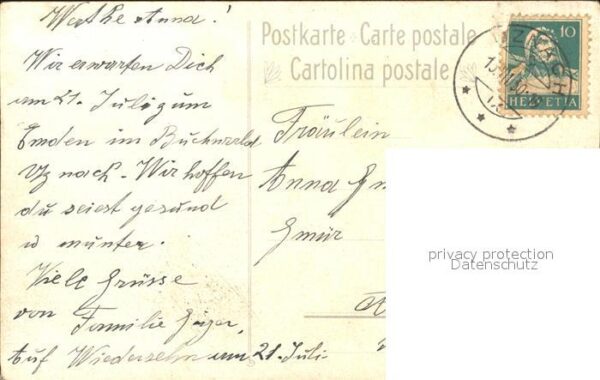 Werthe Anna!
Wir erwarten Dich
am 21. Juli zum
Emden im Buchwald
Utznach. Wir hoffen
du seiest gesund
u munter.
Viele Grüsse
von Familie Geiger,
Auf Wiedersehn am 21. Juli
Postkarte Carte postale
Cartolina postale
10
HELVETIA
Fräulein
Anna
Gmür
privacy protection
Datenschutz